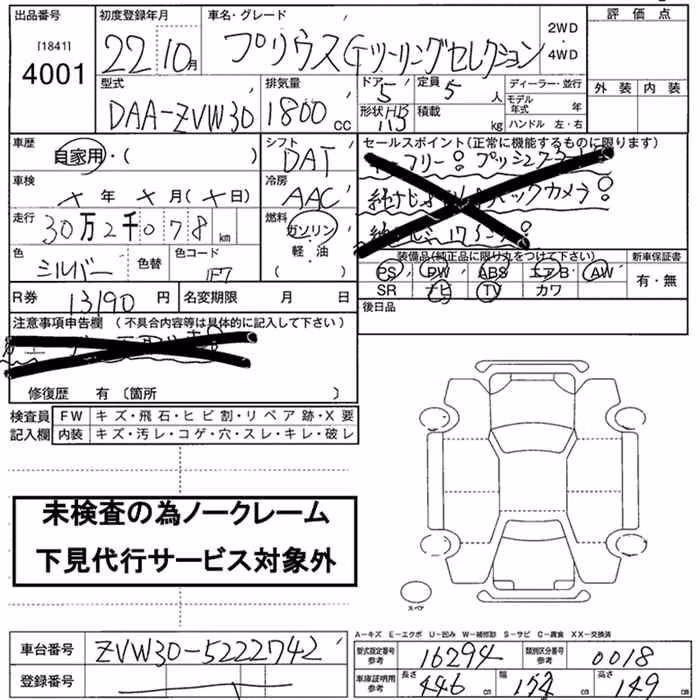 出品番号
[1841]
4001
初度登録年月
22 10月
車名・グレード
プリウス Gツーリングセレクション
2WD
・
4WD
評価点
外装 内装
型式
DAA-ZVW30
排気量
1800 cc
ドア 5
形状 HB
定員 5 人
積載 kg
ディーラー・並行
モデル年式 年
ハンドル 左・右
車歴
自家用・( )
シフト
DAT
車検
× 年 × 月(× 日)
冷房
AAC
走行
30万2千078 km
燃料
ガソリン
・
軽・油
( )
色
シルバー
色替
色コード
1F7
R券
13190 円
名変期限 月 日
セールスポイント(正常に機能するものに限ります)
装備品(純正品に限り丸をつけて下さい)
PS PW ABS エアB AW
SR ナビ TV カワ
新車保証書
有・無
後日品
注意事項申告欄 (不具合内容等は具体的に記入して下さい)
修復歴 有 〔箇所 〕
検査員
記入欄
FW キズ・飛石・ヒビ割・リペア跡・X要
内装 キズ・汚レ・コゲ・穴・スレ・キレ・破レ
未検査の為ノークレーム
下見代行サービス対象外
スペア
A-キズ E-エクボ U-凹み W-補修跡 S-サビ C-腐食 XX-交換済
車台番号
ZVW30-5222742
登録番号
型式指定番号
参考
16294
類別区分番号
参考
0018
車庫証明用
参考
長さ 446 cm
幅 cm
高さ 149 cm